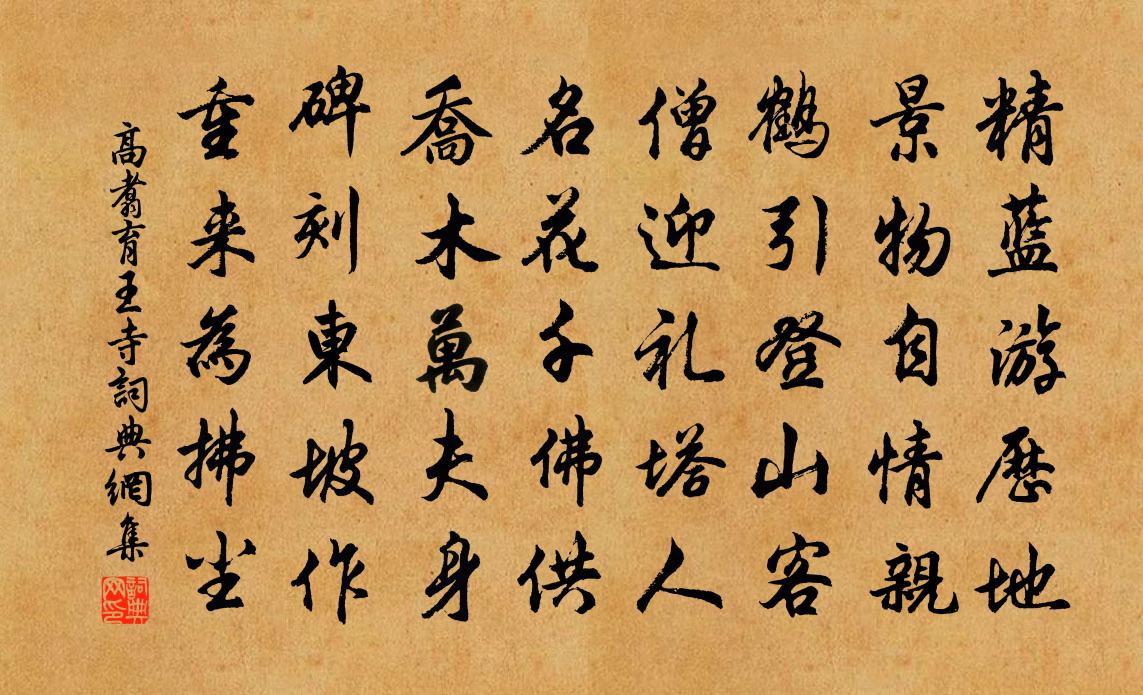 精藍游歷地
景物自情親
鶴引登山客
僧迎礼塔人
名花千佛供
喬木萬夫身
碑刻東坡作
重来為拂尘
高翥育王寺詞典網集
詞典网印